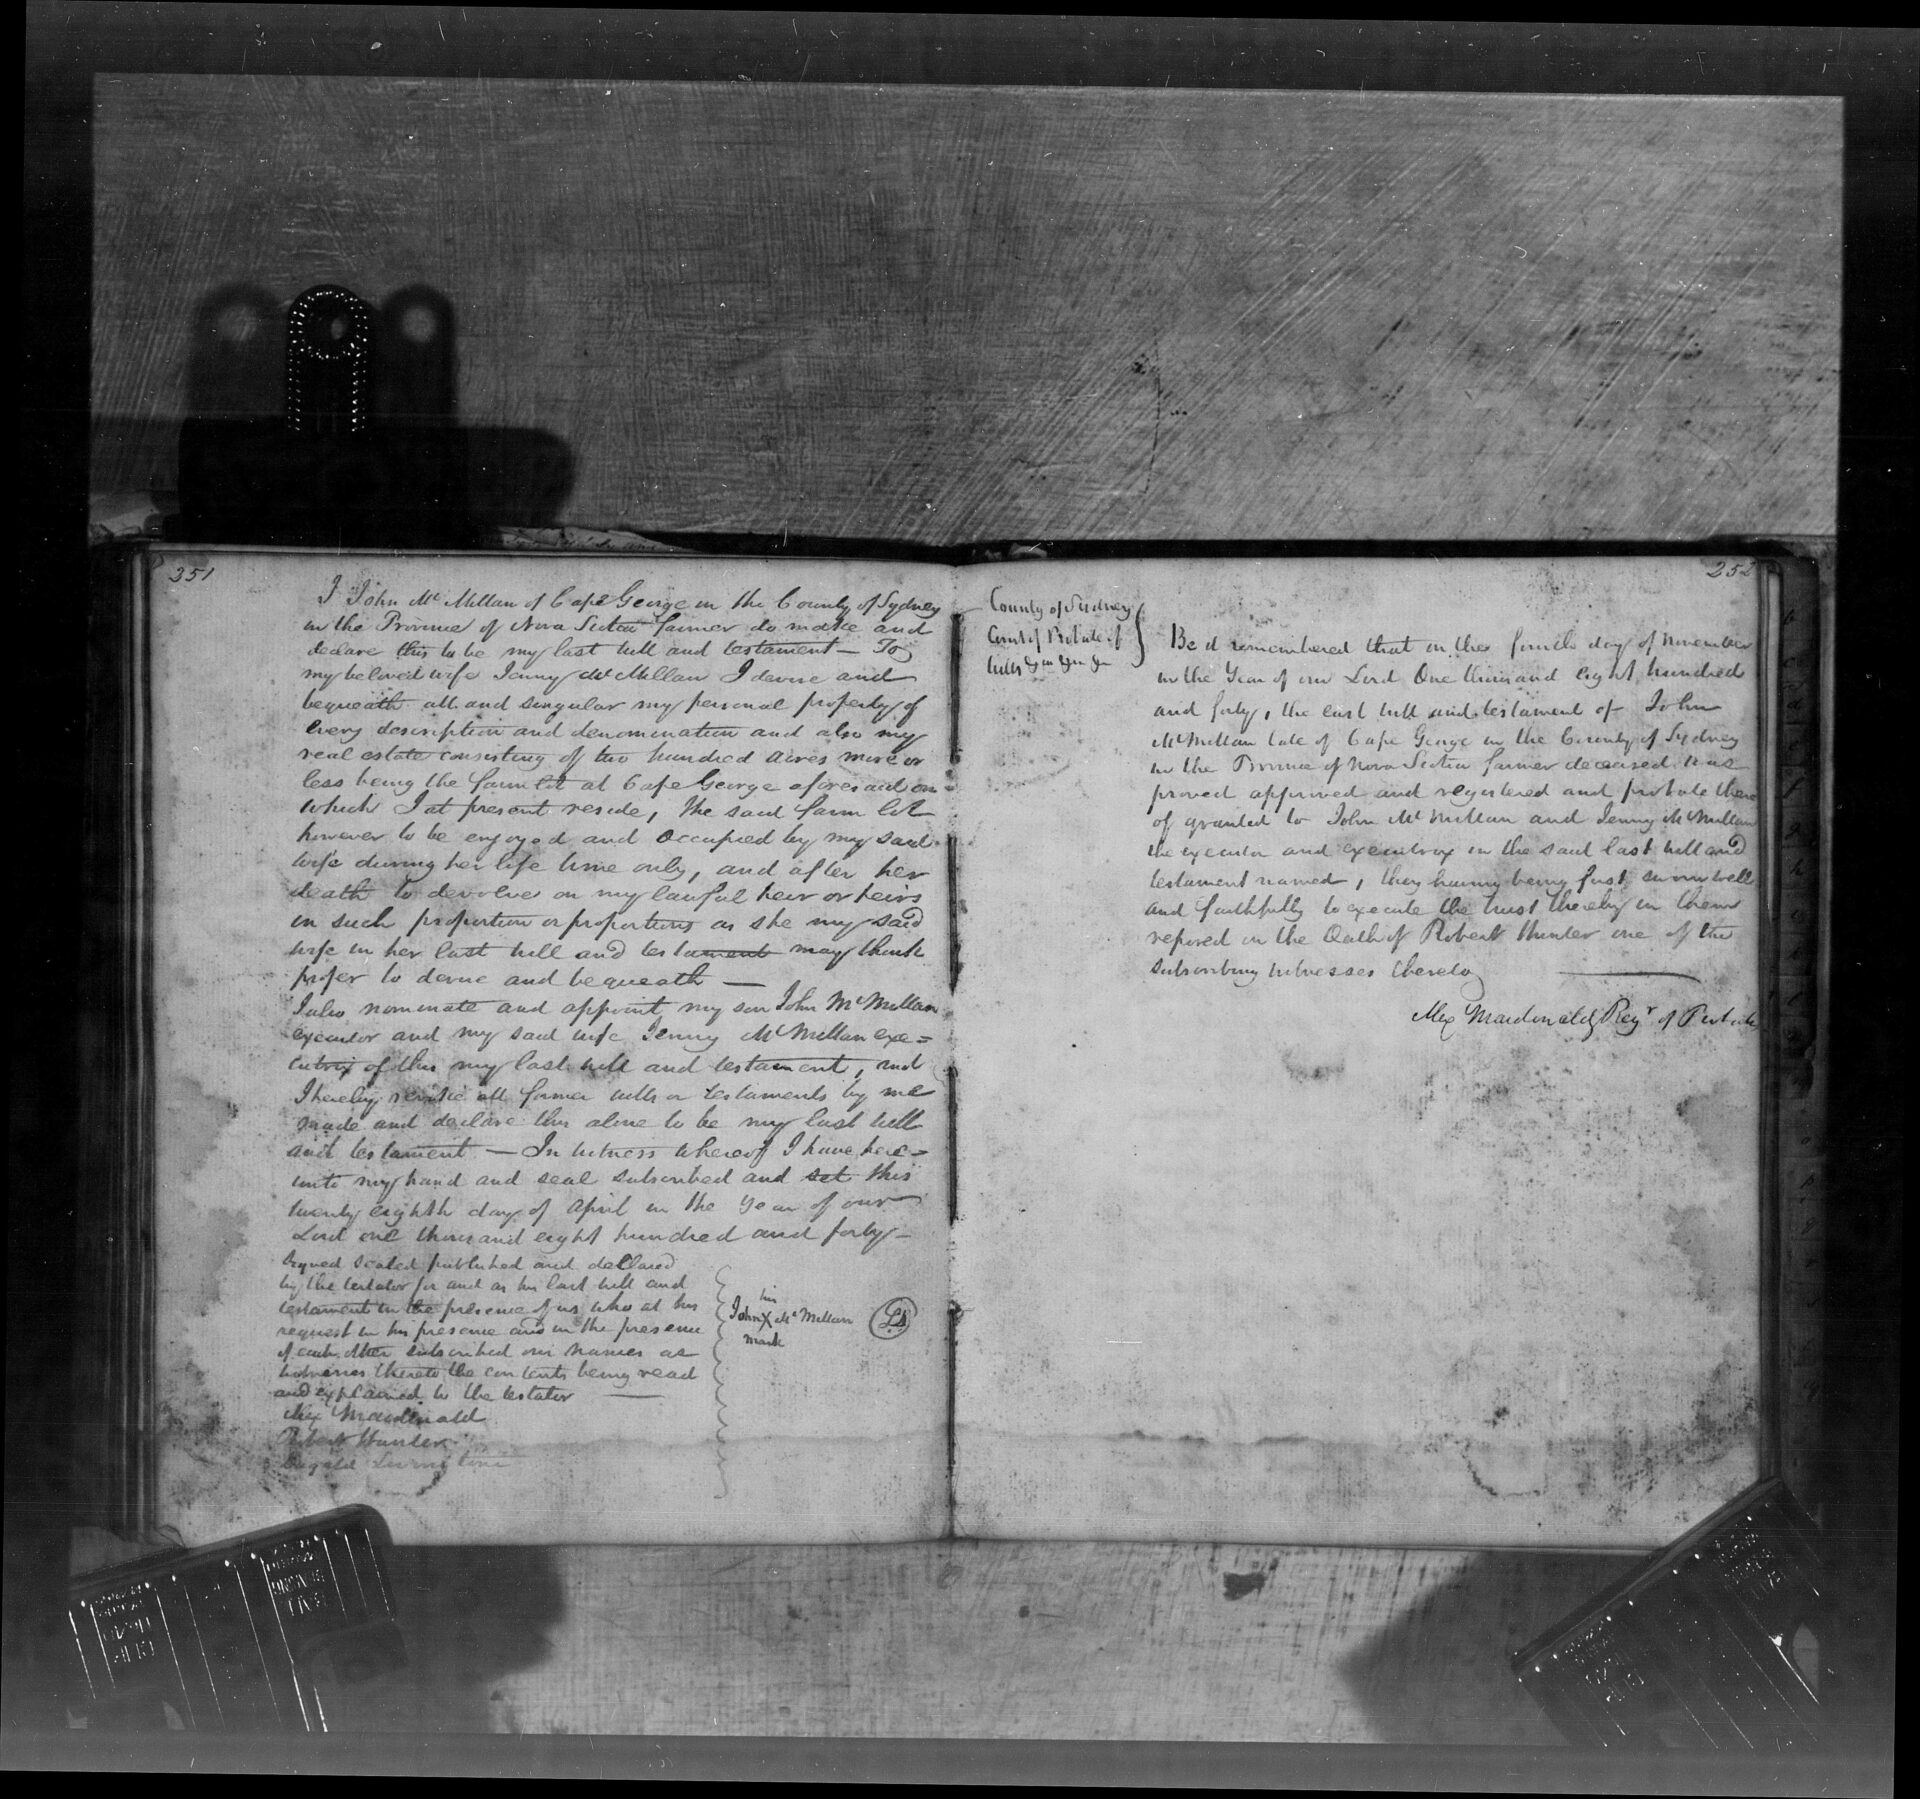 351
I John Mc Millan of Cape George in the County of Sydney
in the Province of Nova Scotia farmer do make and
declare this to be my last will and testament — To
my beloved wife Jenny Mc Millan I devise and
bequeath all and singular my personal property of
every description and denomination and also my
real estate consisting of two hundred acres more or
less being the farm lot at Cape George aforesaid on
which I at present reside, the said farm lot
however to be enjoyed and occupied by my said
wife during her life time only, and after her
death to devolve on my lawful heir or heirs
in such proportion or proportions as she my said
wife in her last will and testament may think
proper to devise and bequeath —
I also nominate and appoint my son John Mc Millan
executor and my said wife Jenny Mc Millan exe=
cutrix of this my last will and testament, and
I hereby revoke all former wills or testaments by me
made and declare this alone to be my last will
and testament — In witness whereof I have here=
unto my hand and seal subscribed and set this
twenty eighth day of April in the Year of our
Lord one thousand eight hundred and forty —
Signed sealed published and declared
by the testator for and as his last will and
testament in the presence of us who at his
request in his presence and in the presence
of each other subscribed our names as
witnesses thereto the contents being read
and explained to the testator —
his
John X Mc Millan LS
mark
Alex Macdonald
Robert Hunter
Dugald Livingstone
252
County of Sydney
Court of Probate of
Wills &c &c &c
Be it remembered that on the fourth day of November
in the Year of our Lord One thousand eight hundred
and forty, the last will and testament of John
McMillan late of Cape George in the County of Sydney
in the Province of Nova Scotia farmer deceased was
proved approved and registered and probate there
of granted to John Mc Millan and Jenny Mc Millan
the executor and executrix in the said last will and
testament named, they having being first sworn well
and faithfully to execute the trust thereby in them
reposed on the Oath of Robert Hunter one of the
subscribing witnesses thereto
Alex Macdonald Regr of Probate